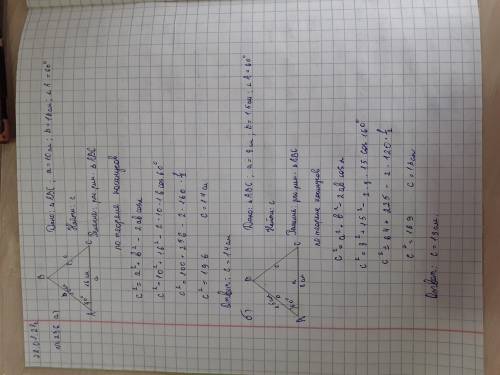 22.01.22
№236 а)
Дано: △ABC; a = 10 см; b = 16 см; ∠A = 60°
Найти: c
Решение: рис. △ABC
B
A
C
c
16 см
a
60°
по теореме косинусов
c² = a² + b² - 2ab cos α
c² = 10² + 16² - 2·10·16 cos 60°
c² = 100 + 256 - 2·160·½
c² = 196
c = 14 см
Ответ: c = 14 см
б)
Дано: △ABC; a = 8 см; b = 15 см; ∠A = 60°
Найти: c
Решение: рис. △ABC
B
A
C
c
a
8 см
60°
по теореме косинусов
c² = a² + b² - 2ab cos α
c² = 8² + 15² - 2·8·15 cos 60°
c² = 64 + 225 - 2·120·½
c² = 169
c = 13 см
Ответ: c = 13 см